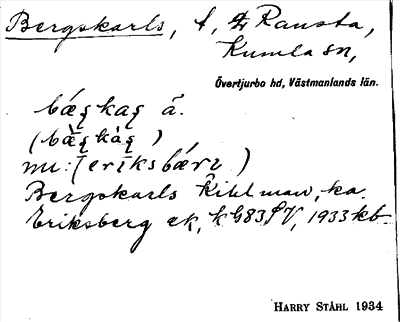 Bergskarls, t, Ransta,
Kumla sn,
Övertjurbo hd, Västmanlands län.
bǽʂkaʂ ä.
(bæ̀ʂkàʂ)
nu: [eriksbǽrɪ)
Bergskarls Kihlman, ka.
Eriksberg ek, k G83 SV, 1933 kb.
HARRY STÅHL 1934